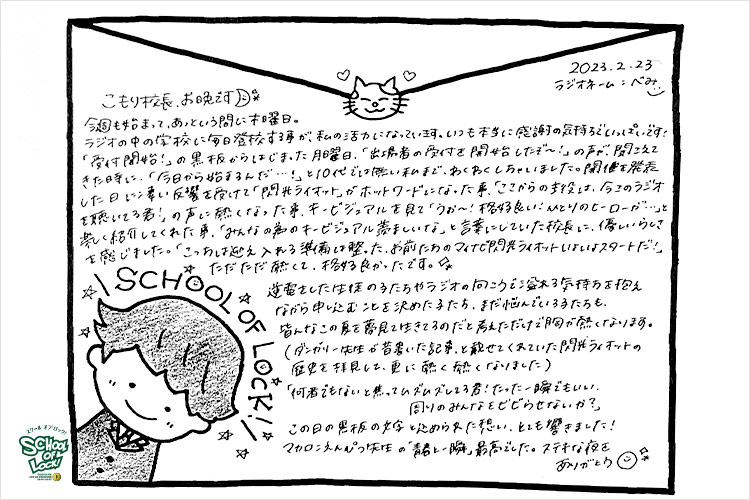 2023.2.23
ラジオネーム:べみ
こもり校長、お晩です
今週も始まって、あっという間に木曜日。
ラジオの中の学校に毎日登校する事が、私の活力になっています。いつも本当に感謝の気持ちでいっぱいです!
「受付開始!」の黒板からはじまった月曜日、「出場者の受付を開始したぞ〜!」の声が、聞こえて
きた時に、「今日から始まるんだ…!」と10代でない私まで、わくわくしちゃいました。開催を発表
した日に凄い反響を受けて「閃光ライオット」がホットワードになった事、「ここからの主役は、今このラジオ
を聴いてる君!」の声に熱くなった事、キービジュアルを見て「うわ〜!格好良い!ひとりのヒーローが…」と
楽しく紹介してくれた事、「みんなの声のキービジュアル羨ましいな」と言葉にしていた校長に、優しいらしさ
を感じました。「こっちは迎え入れる準備は整った、お前たちのマイナビ閃光ライオットいよいよスタートだ!」
ただただ熱くて、格好良かったです。
SCHOOL OF LOCK!
逆電をした生徒の子たちやラジオの向こうで溢れる気持ちを抱え
ながら申し込むことを決めた子たち、まだ悩んでいる子たちも、
皆んなこの夏を夢見て生きてるのだと考えただけで胸が熱くなります。
(ダンガリー先生が昔書いた記事、と載せてくれていた閃光ライオットの
歴史を拝見して、更に熱く熱くなりました)
「何者でもないと焦ってムズムズしてる君!たった一瞬でもいい、
周りのみんなをビビらせないか?」
この日の黒板の文字と込められた想い、とても響きました!
マカロニえんぴつ先生の「青春と一瞬」最高でした。ステキな夜を
ありがとう
スクール オブ ロック!
SCHOOL OF LOCK!